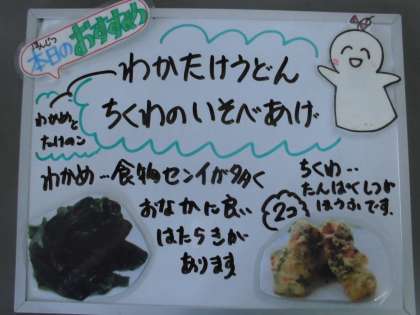 ほんじつ
本日の
おすすめ
わかたけうどん
ちくわのいそべあげ
わかめと
たけのこ
わかめ…食物センイが多く
おなかに良い
はたらきが
あります
ちくわ…
たんぱくしつ
ほうふです。
2コ